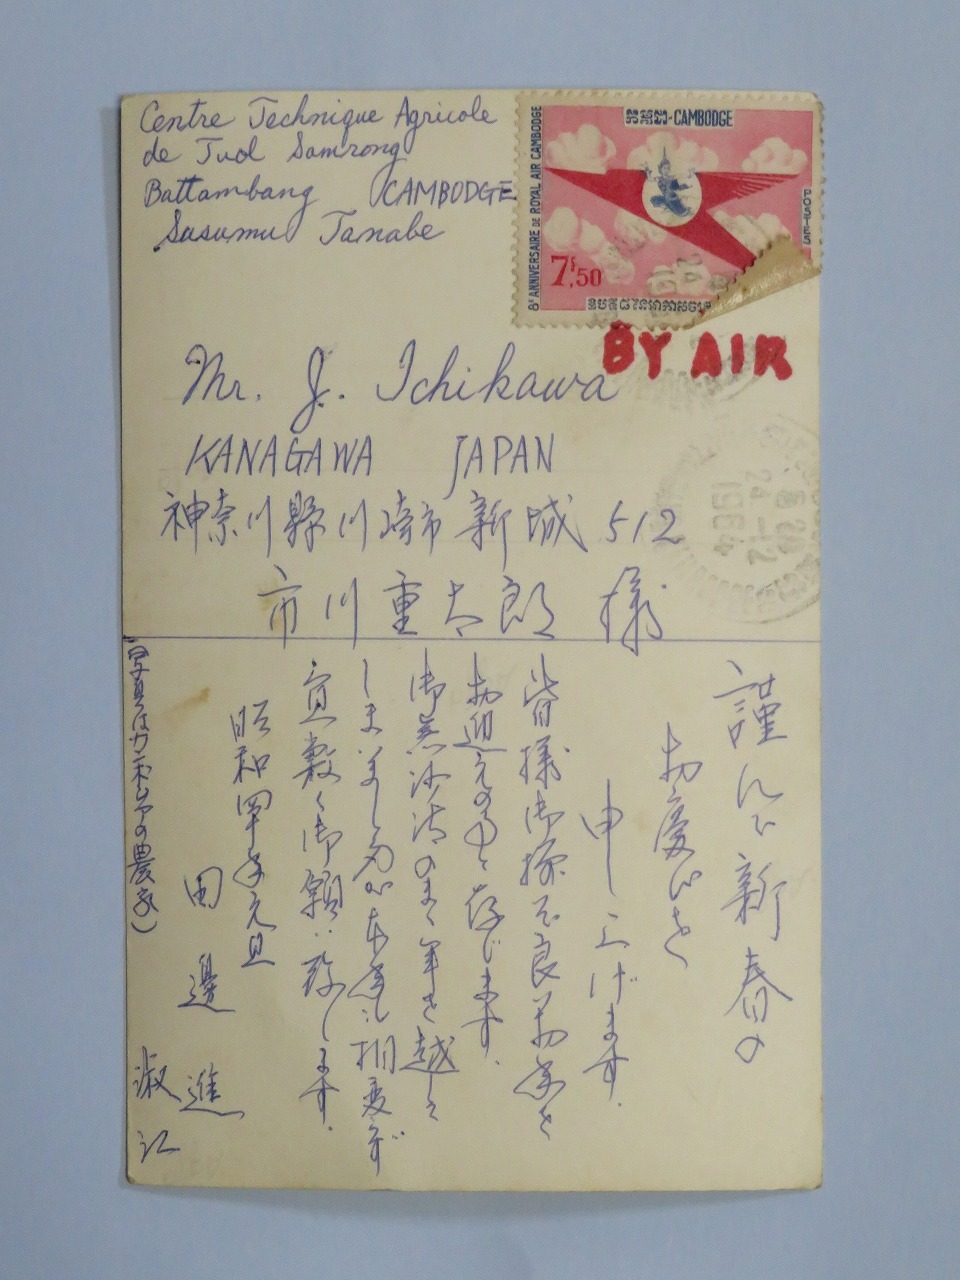 Centre Technique Agricole
de Tuol Samrong
Battambang CAMBODGE
Susumu Tanabe
កម្ពុជា-CAMBODGE
8e ANNIVERSAIRE DE ROYAL AIR CAMBODGE
POSTES
7f,50
BY AIR
Mr. J. Ichikawa
KANAGAWA JAPAN
神奈川縣川崎市新城512
市川重太郎 様
24-12
1964
謹んで新春の
お慶びを
申し上げます.
皆様御揃で良いお年を
お迎えの事と存じます.
御無沙汰のまゝ年を越して
しまいましたが本年も相変らず
宜敷く御願い致します.
昭和四十年元旦
田邊 進
淑江
(写真はカンボジアの農家)